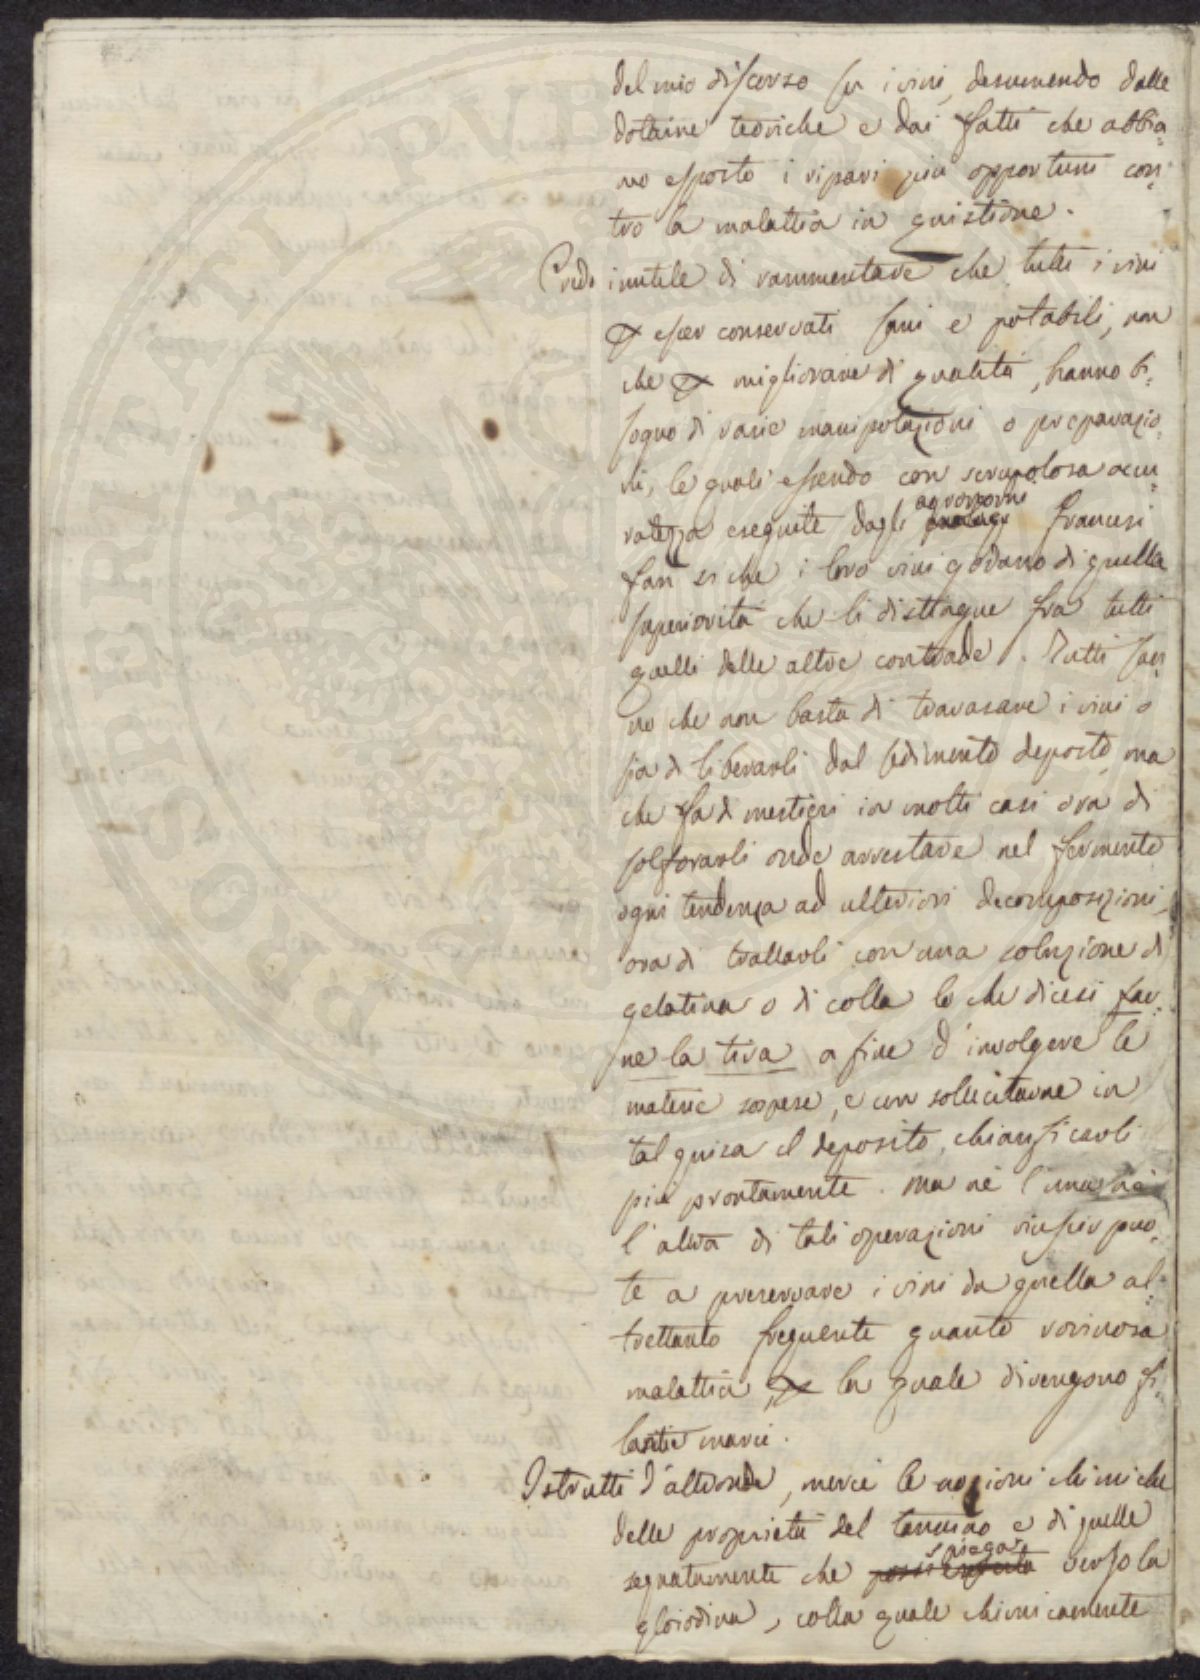 del mio discorso su i vini, desumendo dalle
dotrine teoriche e dai fatti che abbia=
mo esposto i ripari più opportuni con=
tro la malattia in quistione.
Credo inutile di rammentare che tutti i vini
per esser conservati sani e potabili, non
che per migliorare di qualità, hanno bi=
sogno di varie manipolazioni o preparazio=
ni, le quali essendo con scrupolosa accu=
ratezza eseguite dagli agronomi francesi
fan si che i loro vini godano di quella
superiorità che li disttague fra tutti
quelli delle altre contrade. Tutti san=
no che non basta di travasare i vini o
sia di liberarli dal sedimento deposto, ma
che fa di mestieri in molti casi ora di
solforarli onde arrestare nel fermento
ogni tendenza ad ulteriori decomposizioni,
ora di trattarli con una soluzione di
gelatina o di colla lo che dicesi far=
ne la tira a fine d'involgere le
materie sospese, e con sollecitarne in
tal guisa il deposito, chiarificarli
più prontamente. Ma nè l'una nè
l'altra di tali operazioni riuscir puo=
te a preservare i vini da quella al=
trettanto frequente quanto rovinosa
malattia, per la quale divengono fi=
lanti e marci.
Istrutti d'altronde, mercè le nozioni chimiche
delle proprietà del tannino e di quelle
segnatamente che spiegar verso la
gloiodina, colla quale chimicamente
SPERITATI PVBLIC